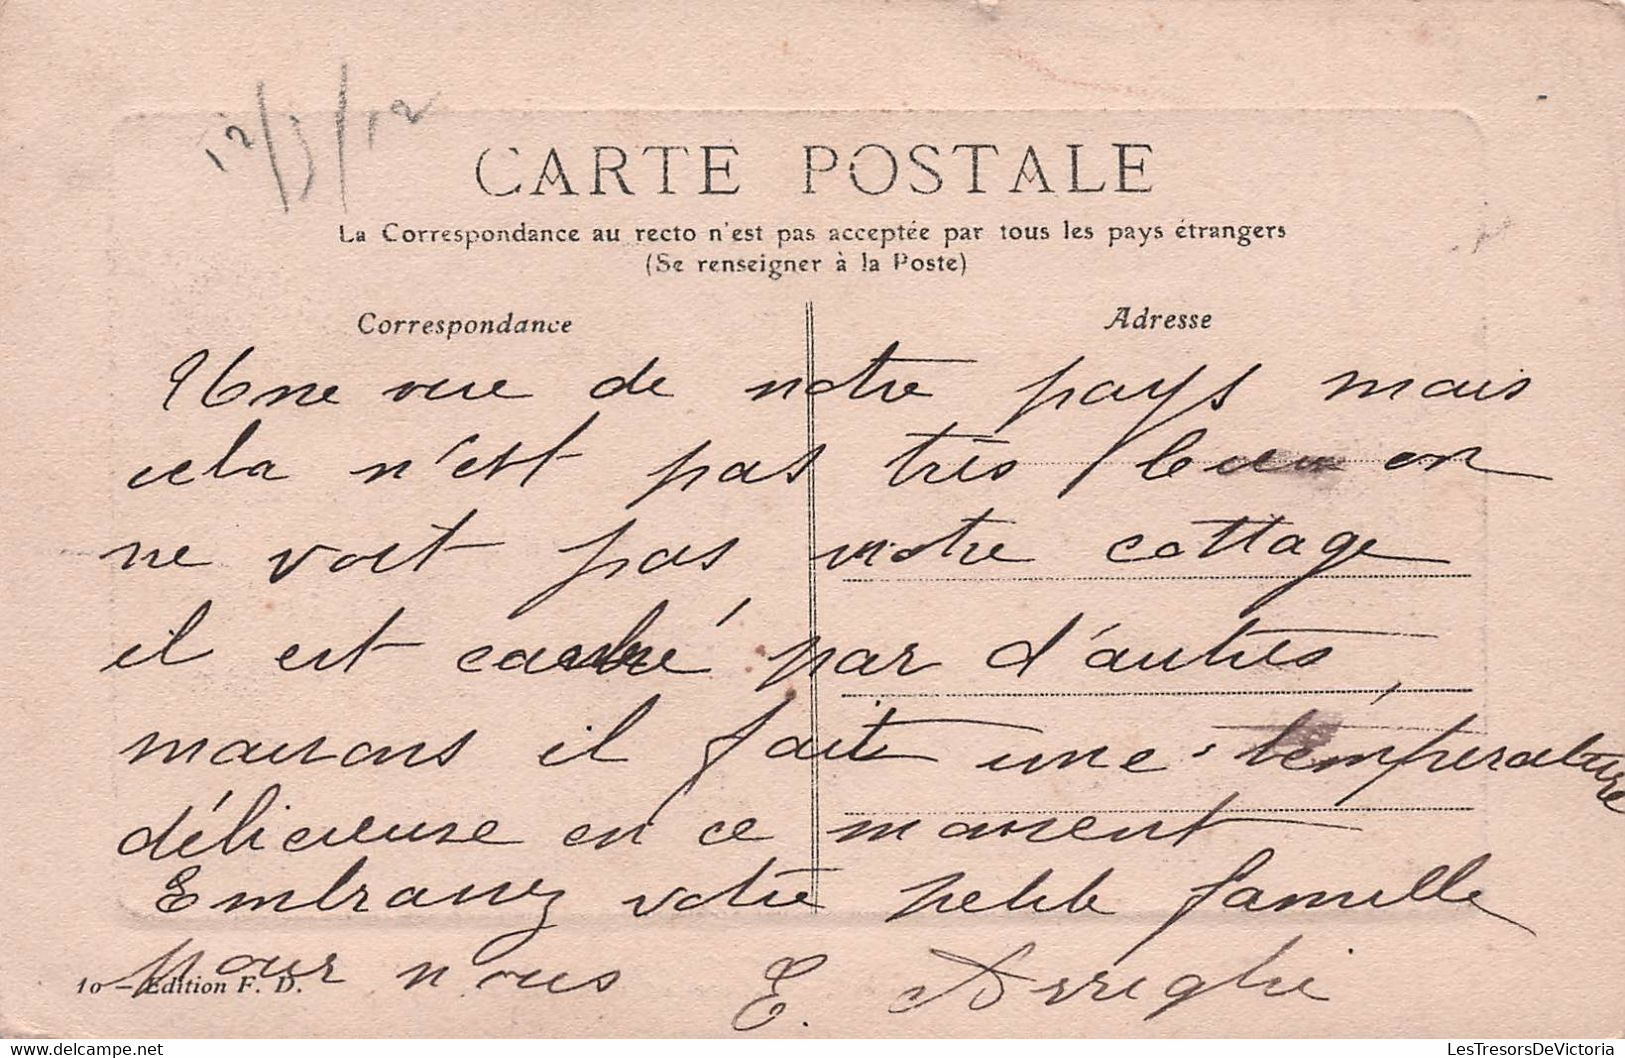 12/3/12
CARTE POSTALE
La Correspondance au recto n'est pas acceptée par tous les pays étrangers
(Se renseigner à la Poste)
Correspondance
Adresse
Une vue de notre pays mais
cela n'est pas très beau on
ne voit pas notre cottage
il est caché par d'autres,
maisons il fait une température
délicieuse en ce moment
Embrassez votre petite famille
pour nous E. Arrighi
10 - Edition F. D.
LesTresorsDeVictoria